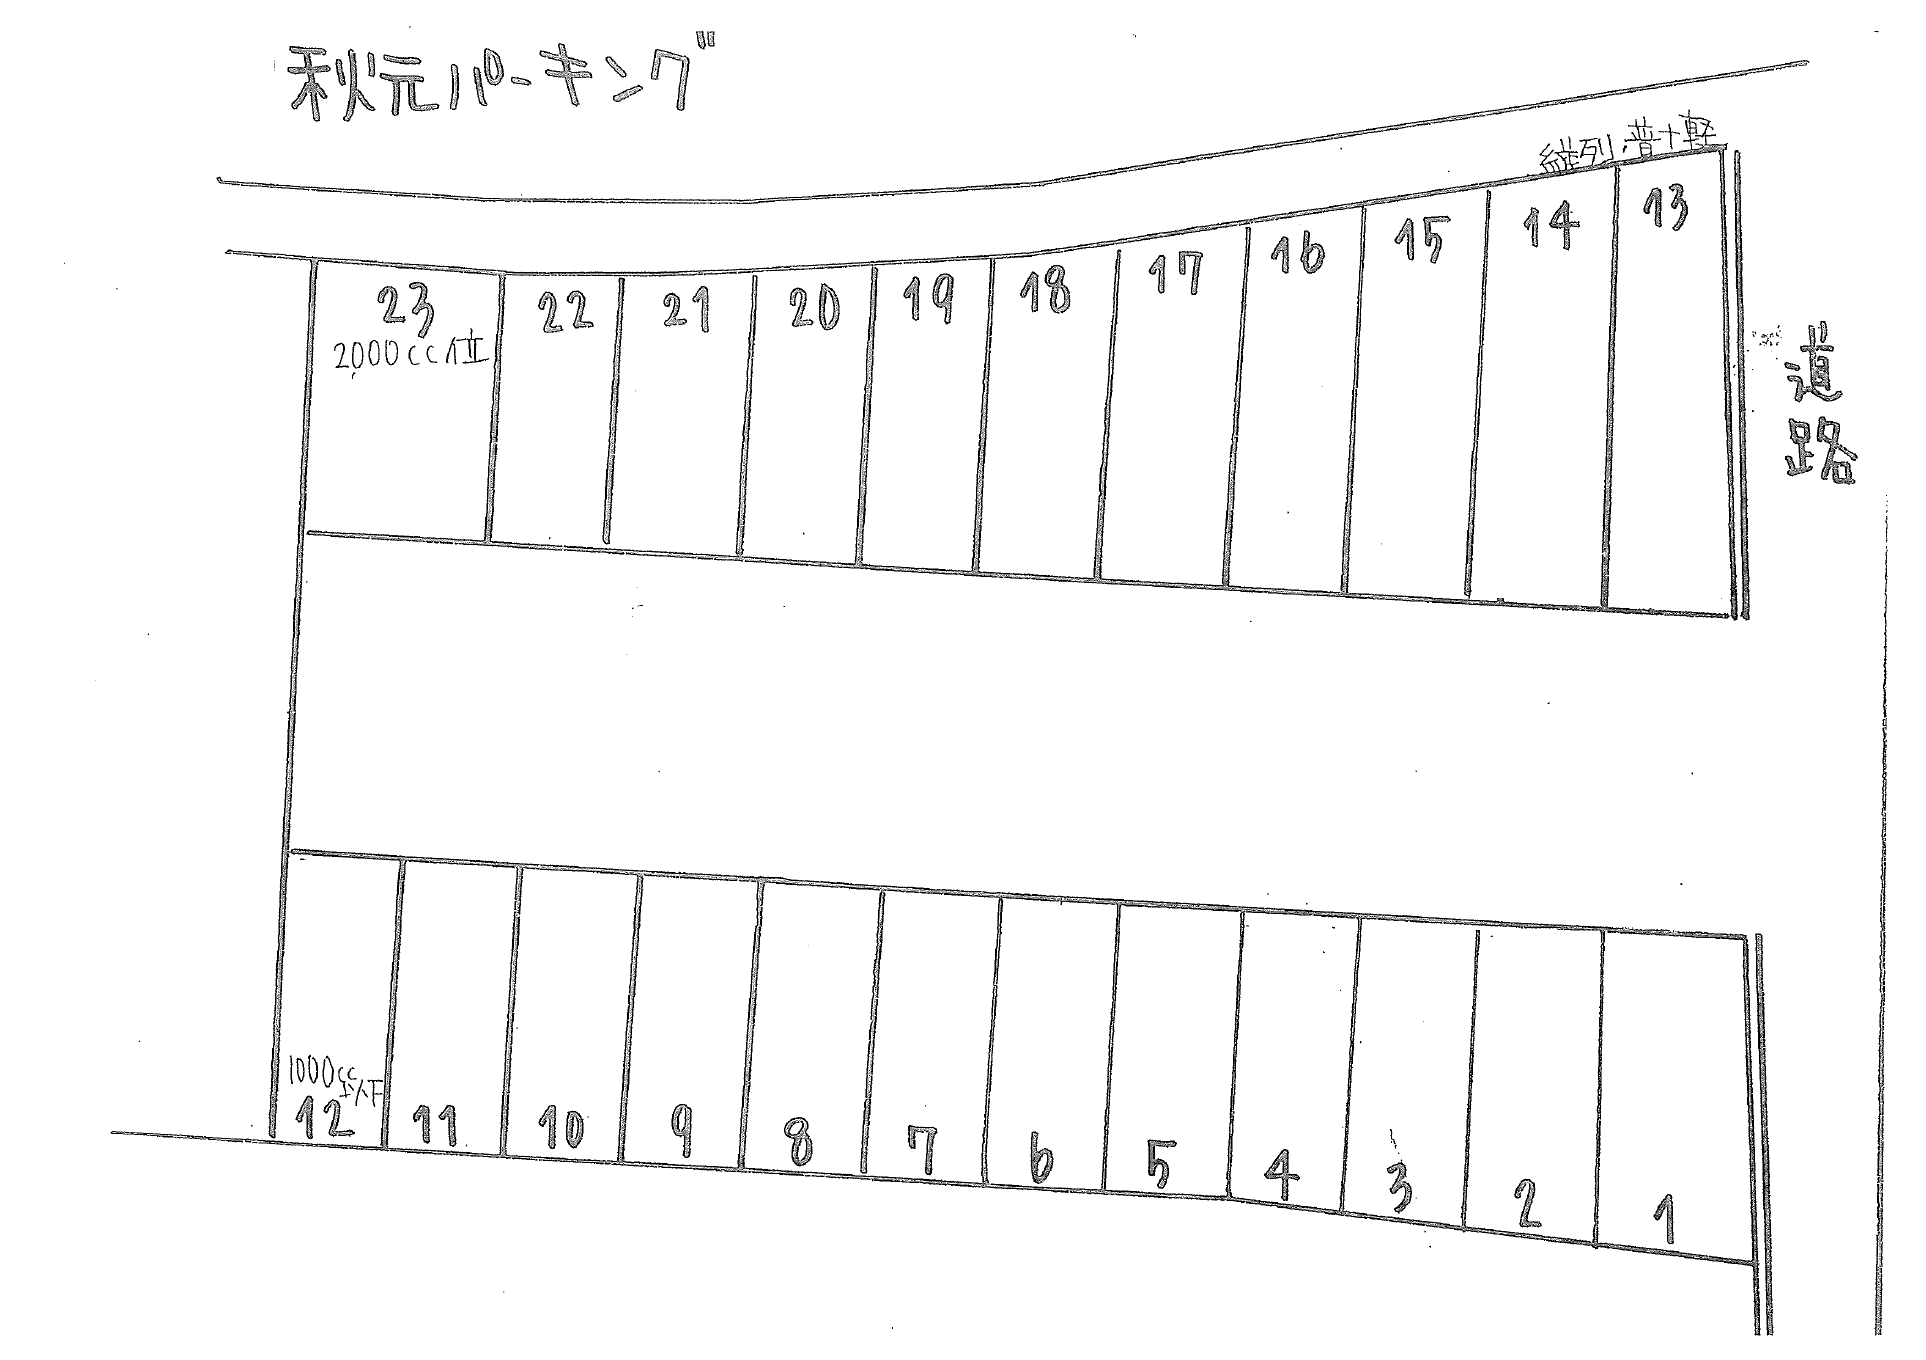 秋元パーキング
縦列.普+軽
13
14
15
16
17
18
19
20
21
22
23
2,000cc位
道路
1000cc以下
12
11
10
9
8
7
6
5
4
3
2
1